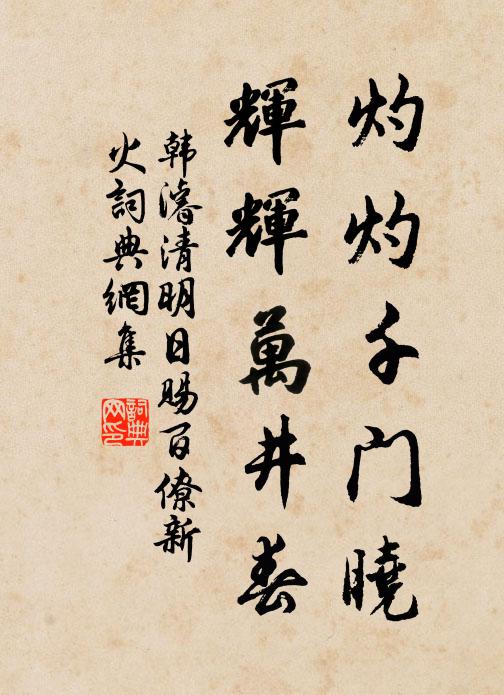 灼灼千门曉
輝輝萬井春
韩濬清明日賜百僚新
火詞典網集
詞典网印